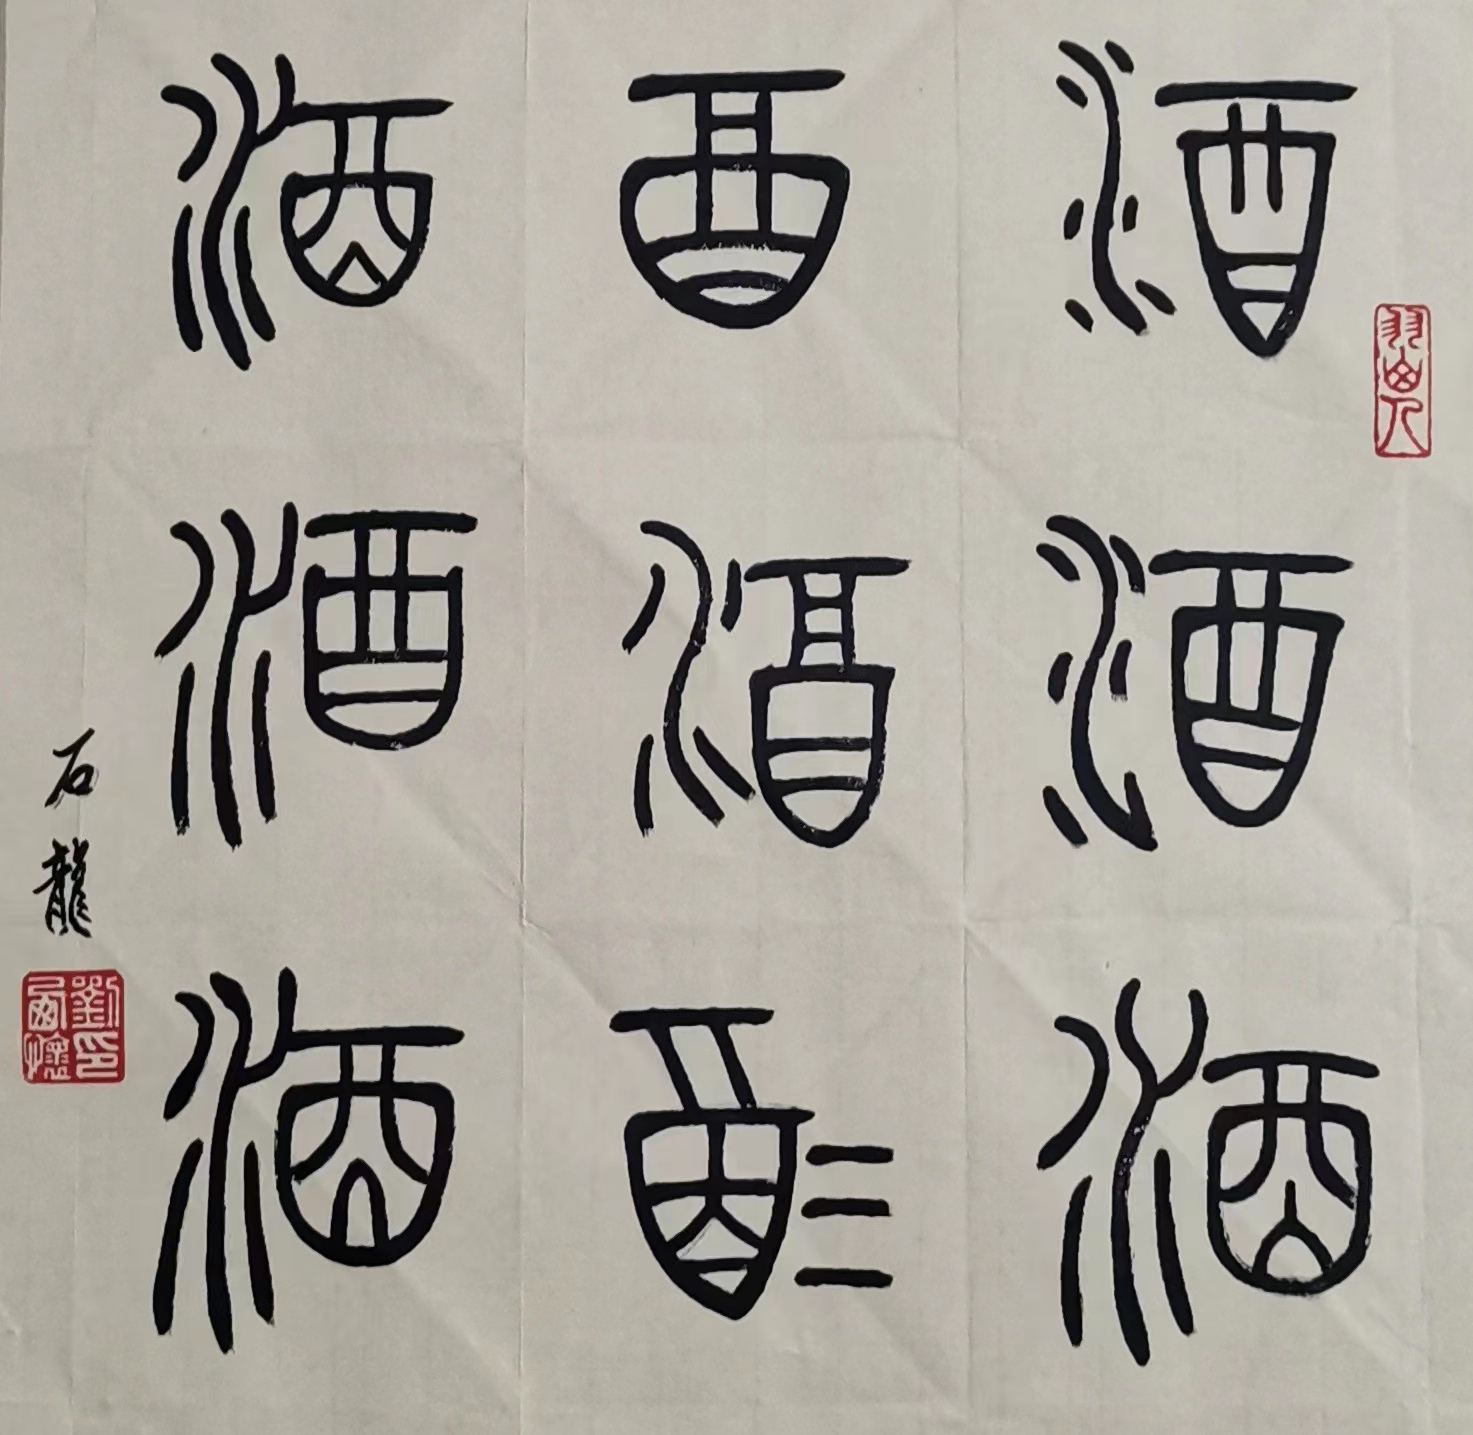 酒酒酒
酉酒酒
酒酒酒
石龍
劉印